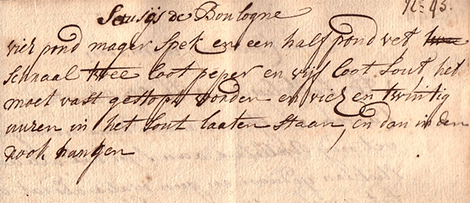 Sausijs de Boulogne No. 43.
vier pond mager Spek en een half pond vet
schraal twee loot peper en vijf loot Sout het
moet vast gestopt worden en vier en twintig
uuren in het Sout laaten staan, en dan in den
rook hangen